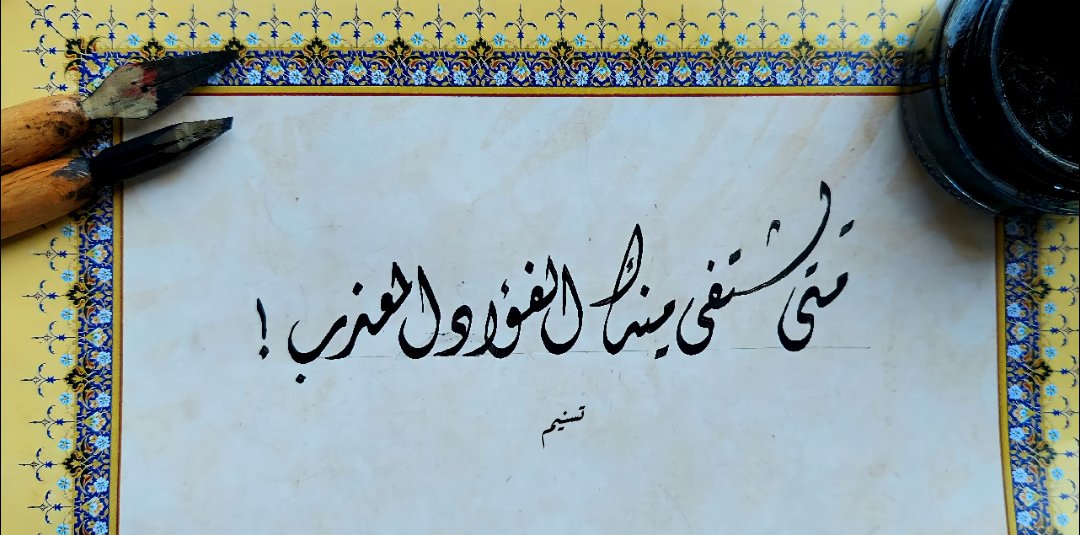 متى يشتفي منك الفؤاد المعذب !
تسنيم